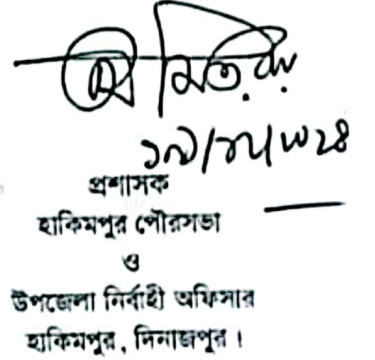 প্রশাসক
হাকিমপুর পৌরসভা
ও
উপজেলা নির্বাহী অফিসার
হাকিমপুর, দিনাজপুর।